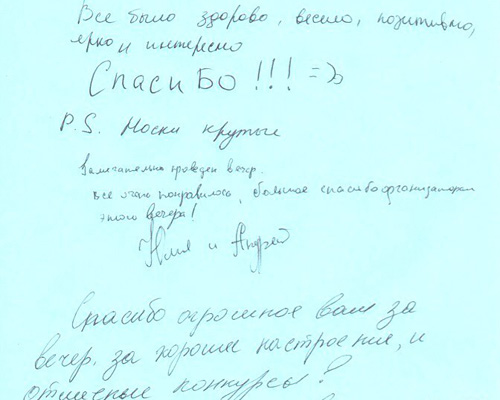 Все было здорово, весело, позитивно,
ярко и интересно
Спасибо!!! =)
P.S. Носки крутые
Замечательно проведен вечер.
Все очень понравилось, большое спасибо организаторам
этого вечера!
и Андрей
Спасибо огромное вам за
вечер, за хорошее настроение, и
отличные конкурсы!